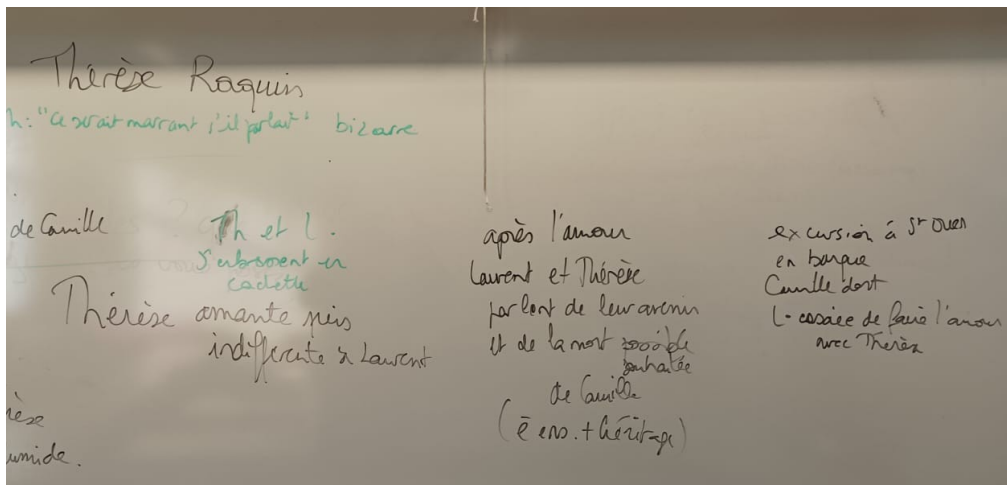 Thérèse Raquin
h: "ce serait marrant s'il parlait" bizarre
de Camille
Th et L.
s'embrassent en
cachette
Thérèse amante puis
indifférente à Laurent
rèse
umide.
après l'amour
Laurent et Thérèse
parlent de leur avenir
et de la mort possible
souhaitée
de Camille
(ê ens. + héritage)
excursion à St Ouen
en barque
Camille dort
L. essaiee de faire l'amour
avec Thérèse